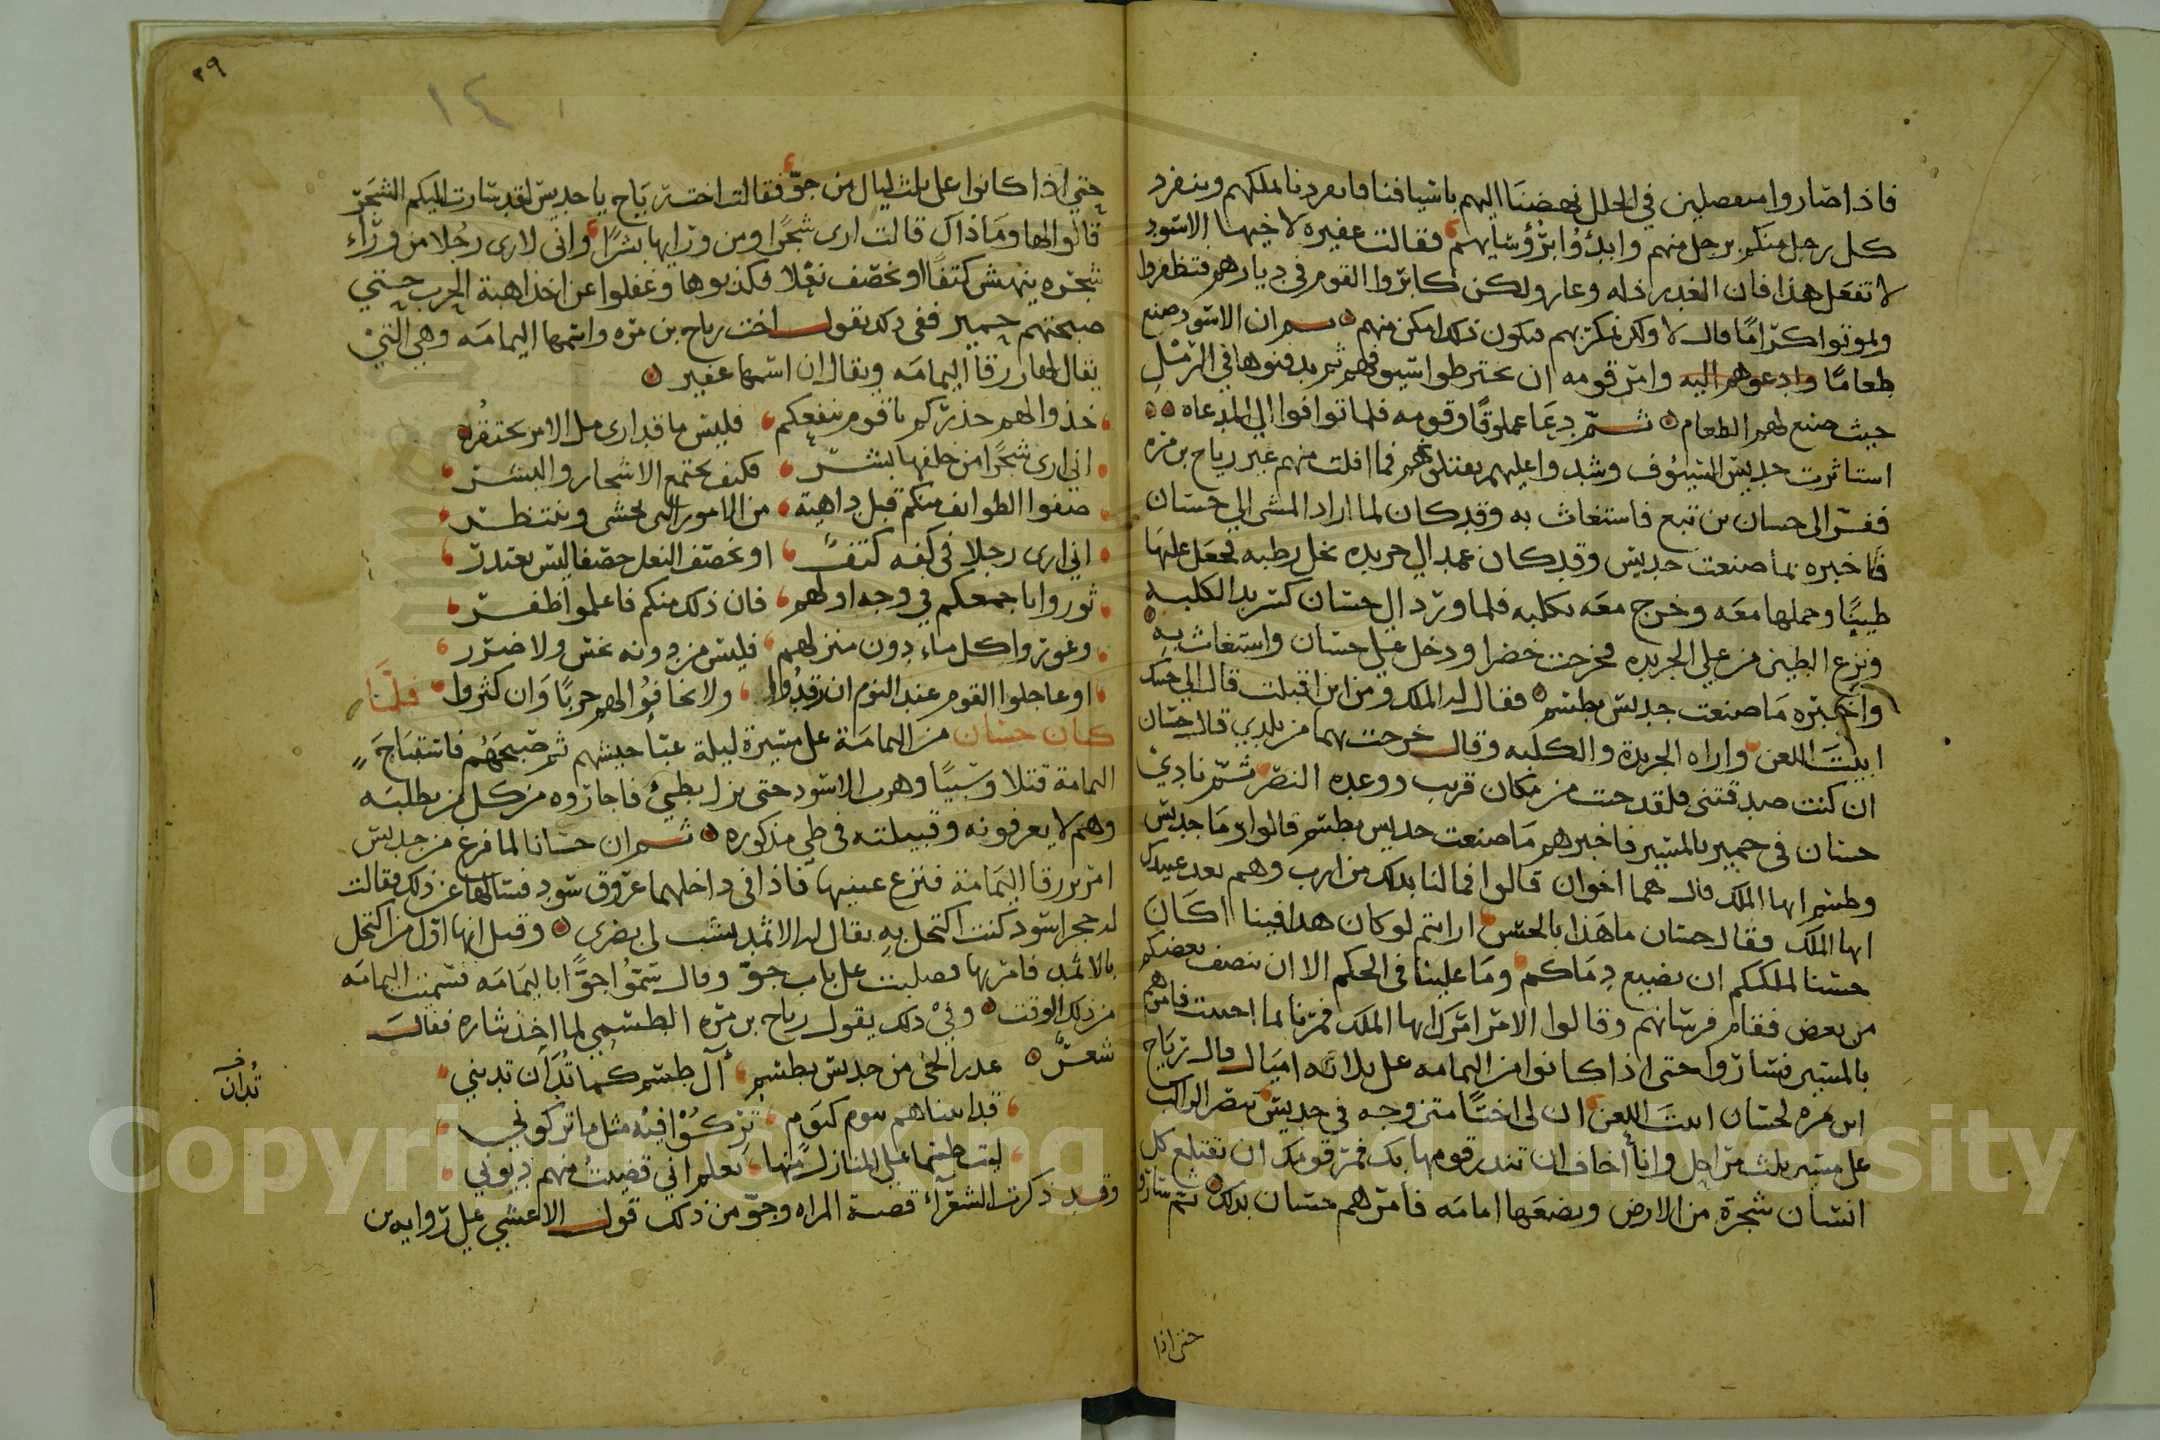 فاذا صاروا متفصلين في الحلل نهضنا اليهم باسيافنا فانفردنا لملكهم وينفرد
كل رجل منكم برجل منهم وابدؤا برؤسايهم فقالت عفيره لاخيها الاسود
لا تفعل هذا فان الغدر ذله وعار ولكن كابروا القوم في ديارهم فتظفروا
ولموتوا كراما قال لا ولكن نمكر بهم فيكون ذلك امكن منهم ثم ان الاسود صنع
طعاما وادعوهم اليه وامر قومه ان تخترطوا سيوفهم ثم يدفنوها في الرمل
حيث صنع لهم الطعام ثم دعا عملوقا وقومه فلما توافوا الي المدعاه
استاثرت جديس السيوف وشدوا عليهم بقتلونهم فما افلت منهم غير رياح بن مره
ففر الى حسان بن تبع فاستغاث به وقد كان لما اراد المشي الي حسان
فاخبره بما صنعت جديس وقد كان عمد الي جريده نخل رطبه فجعل عليها
طينًا وحملها معه وخرج معه بكلبه فلما ورد الي حسان كسر يد الكلبه
ونزع الطين من علي الجريده فخرجت خضرا ودخل علي حسان واستغاث به
واخبره ما صنعت جديس بطسم فقال له الملك ومن اين اقبلت قال الي جيتك
ابيت اللعن واراه الجريدة والكلبه وقال خرجت بهما من بلدي قال حسان
ان كنت صدقتني فلقد جت من مكان قريب ووعده النصر ثم نادي
حسان في حمير بالمسير فاخبرهم ما صنعت جديس بطسم قالوا وما جديس
وطسم ايها الملك قال هما اخوان قالوا فما لنا بذلك من ارب وهم بعد عبيدك
ايها الملك فقال حسان ما هذا بالحسن ارايتم لو كان هذا فينا اكان
حسنا لملككم ان يضيع دماكم وما علينا في الحكم الا ان ننصف بعضكم
من بعض فقام فرسانهم وقالوا الامر امرك ايها الملك فمرنا لما احببت فامرهم
بالمسير فساروا حتى اذا كانوا من اليمامه على ثلاثه اميال قال رياح
ابن مره لحسان ابيت اللعن ان لى اختًا متزوجه في جديس تبصر الراكب
على مسير ثلث مراحل وانا أخاف ان تنذر قومها بك فمر قومك ان يقتلع كل
انسان شجرة من الارض ويضعها امامه فامرهم حسان بذلك ثم ساروا
حتى اذا
٢٩
١٤
حتي اذا كانوا على ثلث ليال من جوّ فقالت اخت رياح يا جديس لقد سارت اليكم الشجر
قالوا لها وما ذاك قالت ارى شجرًا ومن ورايها بشرًا واني لارى رجُلا من ورآء
شجره ينهش كتفًا او يخصف نعلا فكذبوها وغفلوا عن اخذ اهبة الحرب حتي
صبحتهم حمير ففي ذلك تقول اخت رياح بن مره واسمها اليمامه وهي التي
يقال لها زرقا اليمامه ويقال ان اسمها عفير
خذوا لهم حذركم يا قوم ينفعكم فليس ما قد ارى مل الامر يحتقر
اني ارى شجرًا من خلفها بشر فكيف يجتمع الاشجار والبشر
صفوا الطوائف منكم قبل داهية من الامور التى تخشى وينتظر
اني ارى رجلا في كفه كتف او يخصف النعل خصفا ليس يعتدر
ثوروا باجمعكم في وجه اولهم فان ذلك منكم فاعلموا ظفر
وغوروا كل ماء دون منزلهم فليس من دونه غش ولا ضرر
او عاجلوا القوم عند النوم ان رقدوا ولا تخافوا لهم حربًا وان كثروا فلما
كان حسان من اليمامة على مسيرة ليلة عبّا جيشهم ثم صبحهُم فاستباح
اليمامة قتلا وسبيًا وهرب الاسود حتى نزل بطيئ فاجاروه من كل من يطلبه
وهم لا يعرفونه وقبيلته في طي مذكوره ثم ان حسانا لما فرغ من جديس
امر بزرقا اليمامة فنزع عينيها فاذا في داخلهما عروق سود فسالها عن ذلك فقالت
له حجر اسود كنت اكتحل به يقال له الاثمد يثبت لى بصري وقيل انها اوّل من اكتحل
بالاثمد فامر بها فصلبت على باب جوّ وقال سمّوا جوًّا باليمامه فسميت اليمامه
من ذلك الوقت وفي ذلك يقول رياح بن مره الطسمي لما اخذ بثاره فقال
شعر غدر الحي من جديس بطسم آل طسم كما تُدَان تديني
قد اتيناهم بيوم كيوم تركوا فيه مثل ما تركوني
ليت طسما على المنازل منها تعلم اني قضيت منهم ديوني
وقد ذكرت الشعرآء قصة المراه وجوّ من ذلك قول الاعشي علي روايه بن
تُدان
Copyright © King Saud University